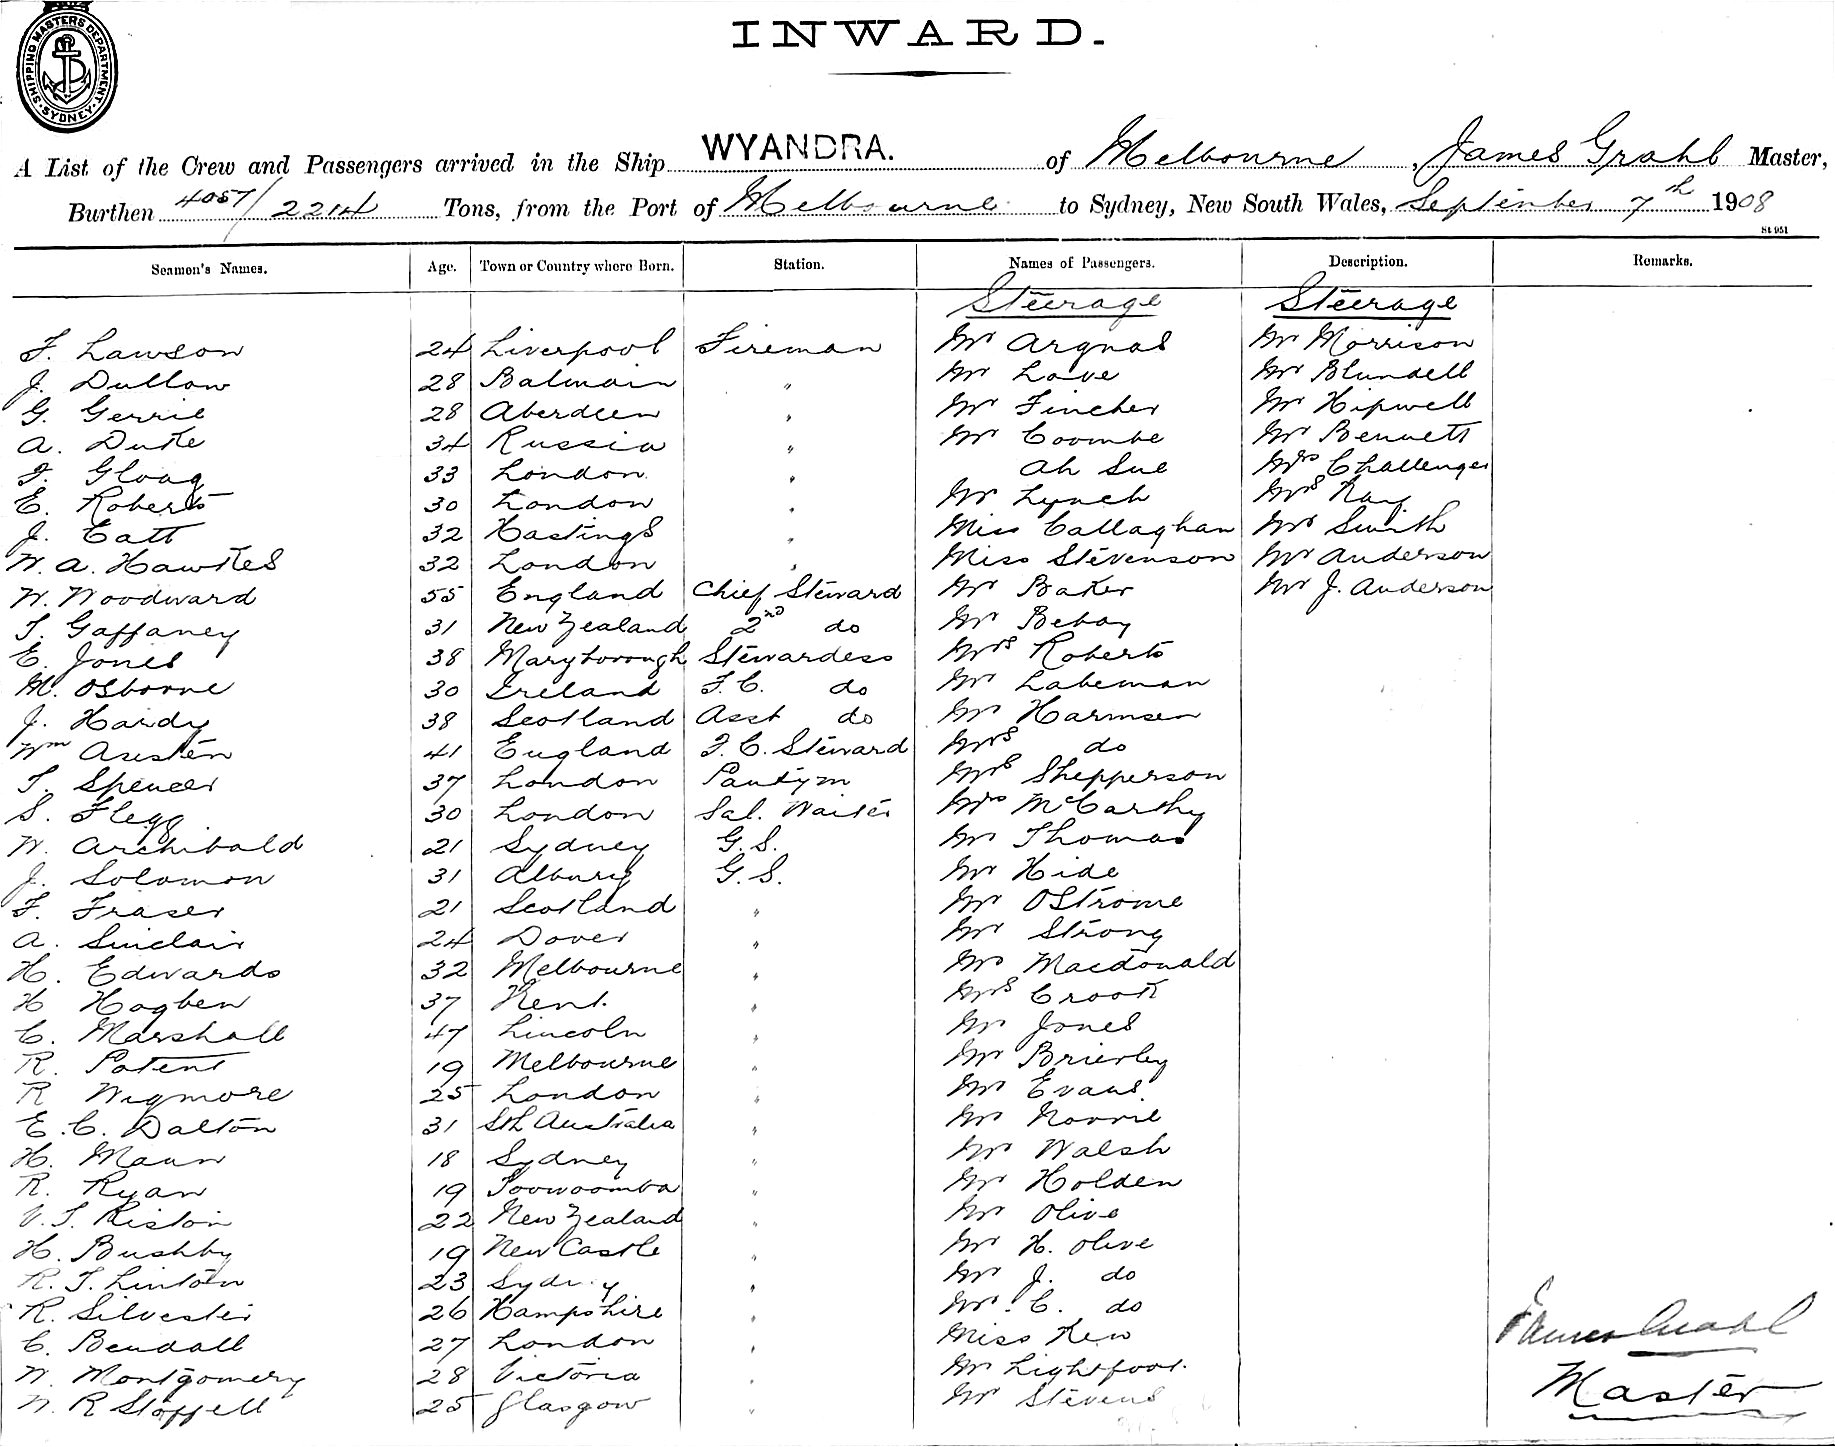 SHIPPING MASTERS DEPARTMENT. SYDNEY
INWARD.
A List of the Crew and Passengers arrived in the Ship WYANDRA. of Melbourne, James Grahl Master,
Burthen 4057/2214 Tons, from the Port of Melbourne to Sydney, New South Wales, September 7th 1908
St 951
Seamen's Names. Age. Town or Country where Born. Station. Names of Passengers. Description. Remarks.
Steerage Steerage
F. Lawson 24 Liverpool Fireman Mr Argnas Mr Morrison
J. Dullow 28 Balmain " Mr Love Mr Blundell
G. Gerrie 28 Aberdeen " Mr Fincher Mr Hipwell
A. Duke 34 Russia " Mr Coombe Mr Bennett
F. Gloag 33 London " Ah Sue Mrs Challenger
E. Roberts 30 London " Mr Lynch Mrs Kay
J. Catt 32 Hastings " Miss Callaghan Mr Smith
W. A. Hawkes 32 London " Miss Stevenson Mr Anderson
W. Woodward 55 England Chief Steward Mr Baker Mr J. Anderson
T. Gaffaney 31 New Zealand 2nd do Mr Bebay
E. Jones 38 Maryborough Stewardess Mrs Roberts
M. Osborne 30 Ireland F.C. do Mr Labeman
J. Hardy 38 Scotland Asst do Mr Harmsen
Wm Austen 41 England F.C. Steward Mrs do
T. Spencer 37 London Pantym Mrs Shepperson
S. Flegg 30 London Sal. Waiter Mrs McCarthy
W. Archibald 21 Sydney G.S. Mr Thomas
J. Solomon 31 Albury G.S. Mr Hide
F. Fraser 21 Scotland " Mr OStrome
A. Sinclair 24 Dover " Mr Strong
H. Edwards 32 Melbourne " Mrs Macdonald
H Hogben 37 Kent. " Mrs Crook
C. Marshall 47 Lincoln " Mr Jones
R. Patent 19 Melbourne " Mr Brierley
R Wigmore 25 London " Mr Evans
E. C. Dalton 31 Sth Australia " Mr Norrie
H. Mann 18 Sydney " Mr Walsh
R. Ryan 19 Toowoomba " Mr Holden
V. T. Riston 22 New Zealand " Mr Olive
H. Bushby 19 New Castle " Mr H. Olive
R. T. Linton 23 Sydney " Mr J. do
R. Silvester 26 Hampshire " Mr. C. do
C. Bendall 27 London " Miss Kew
W. Montgomery 28 Victoria " Mr Lightfoot.
W. R Stoffell 25 Glasgow " Mr Stevens
James Grahl
Master